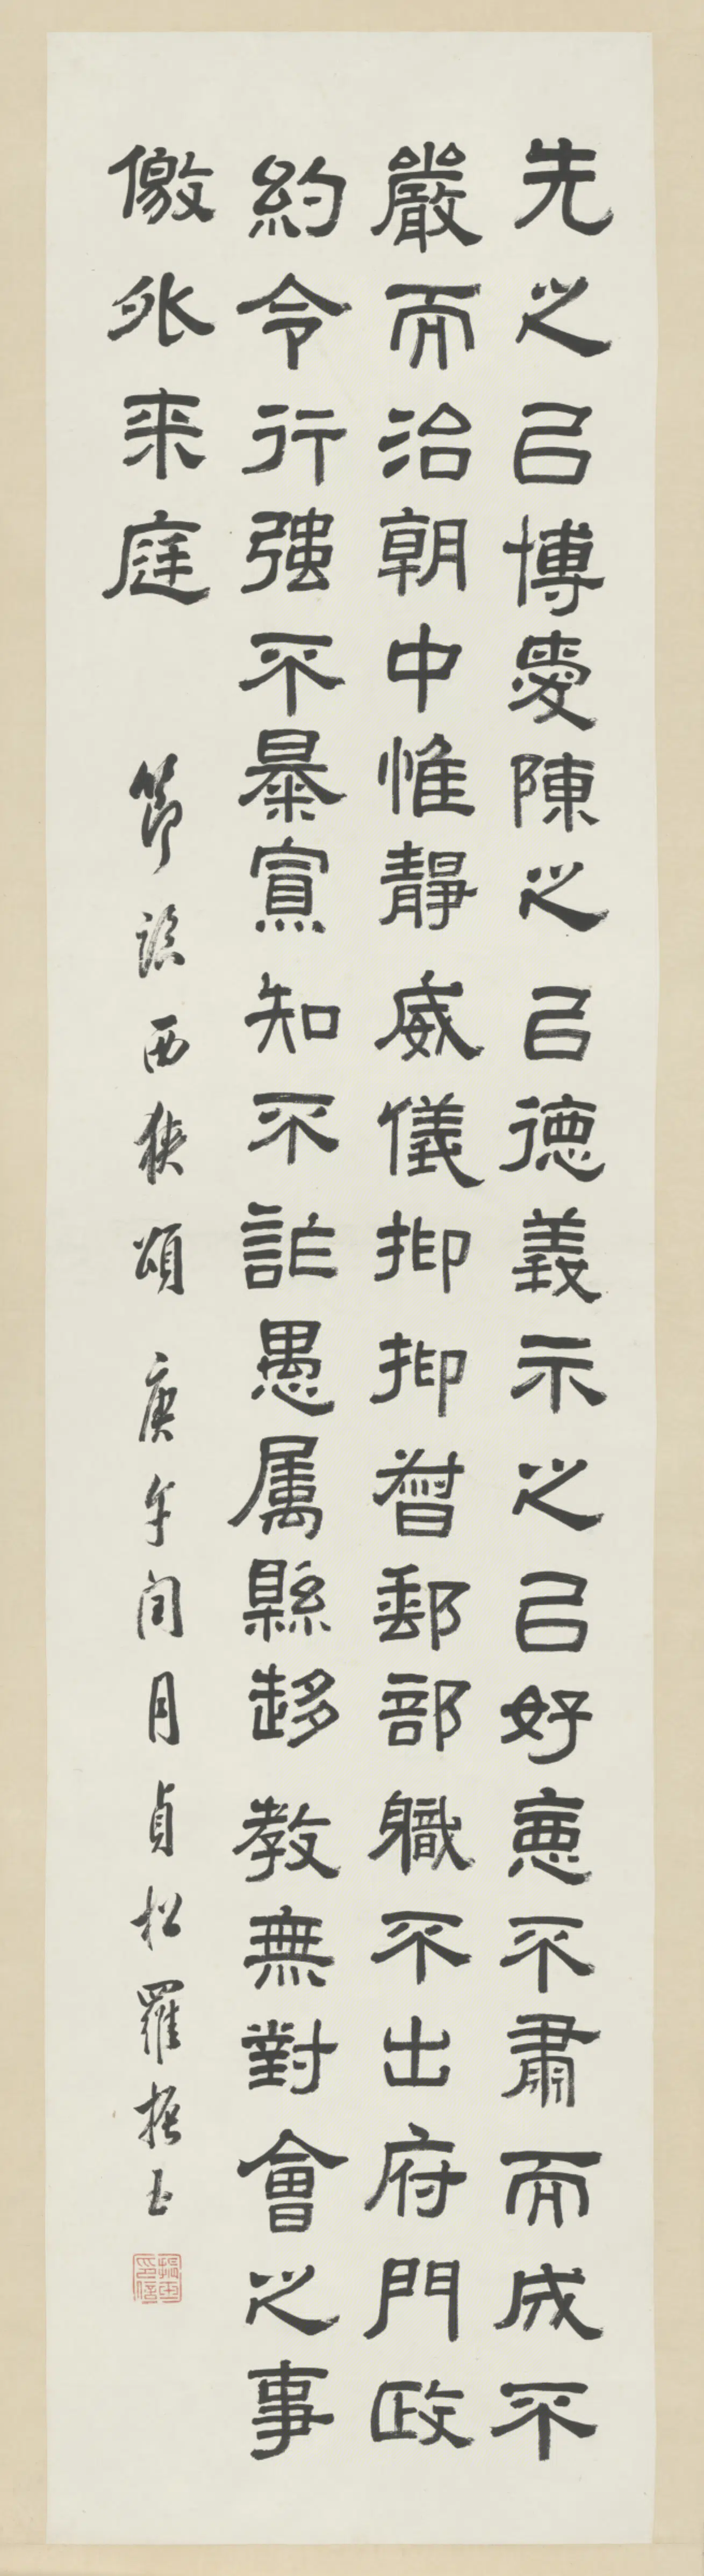 先之㠯博愛陳之㠯德義示之㠯好惡不肅而成不
嚴而治朝中惟靜威儀抑抑督郵部職不出府門政
約令行強不暴寡知不詐愚属縣趍教無對會之事
儌外来庭
節臨西狹頌 庚午閏月貞松羅振玉
振玉印信